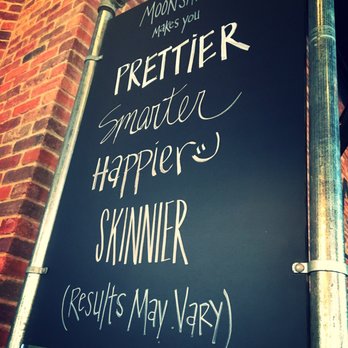 makes you
PRETTIER
Smarter
Happier
SKINNIER
(Results May Vary)